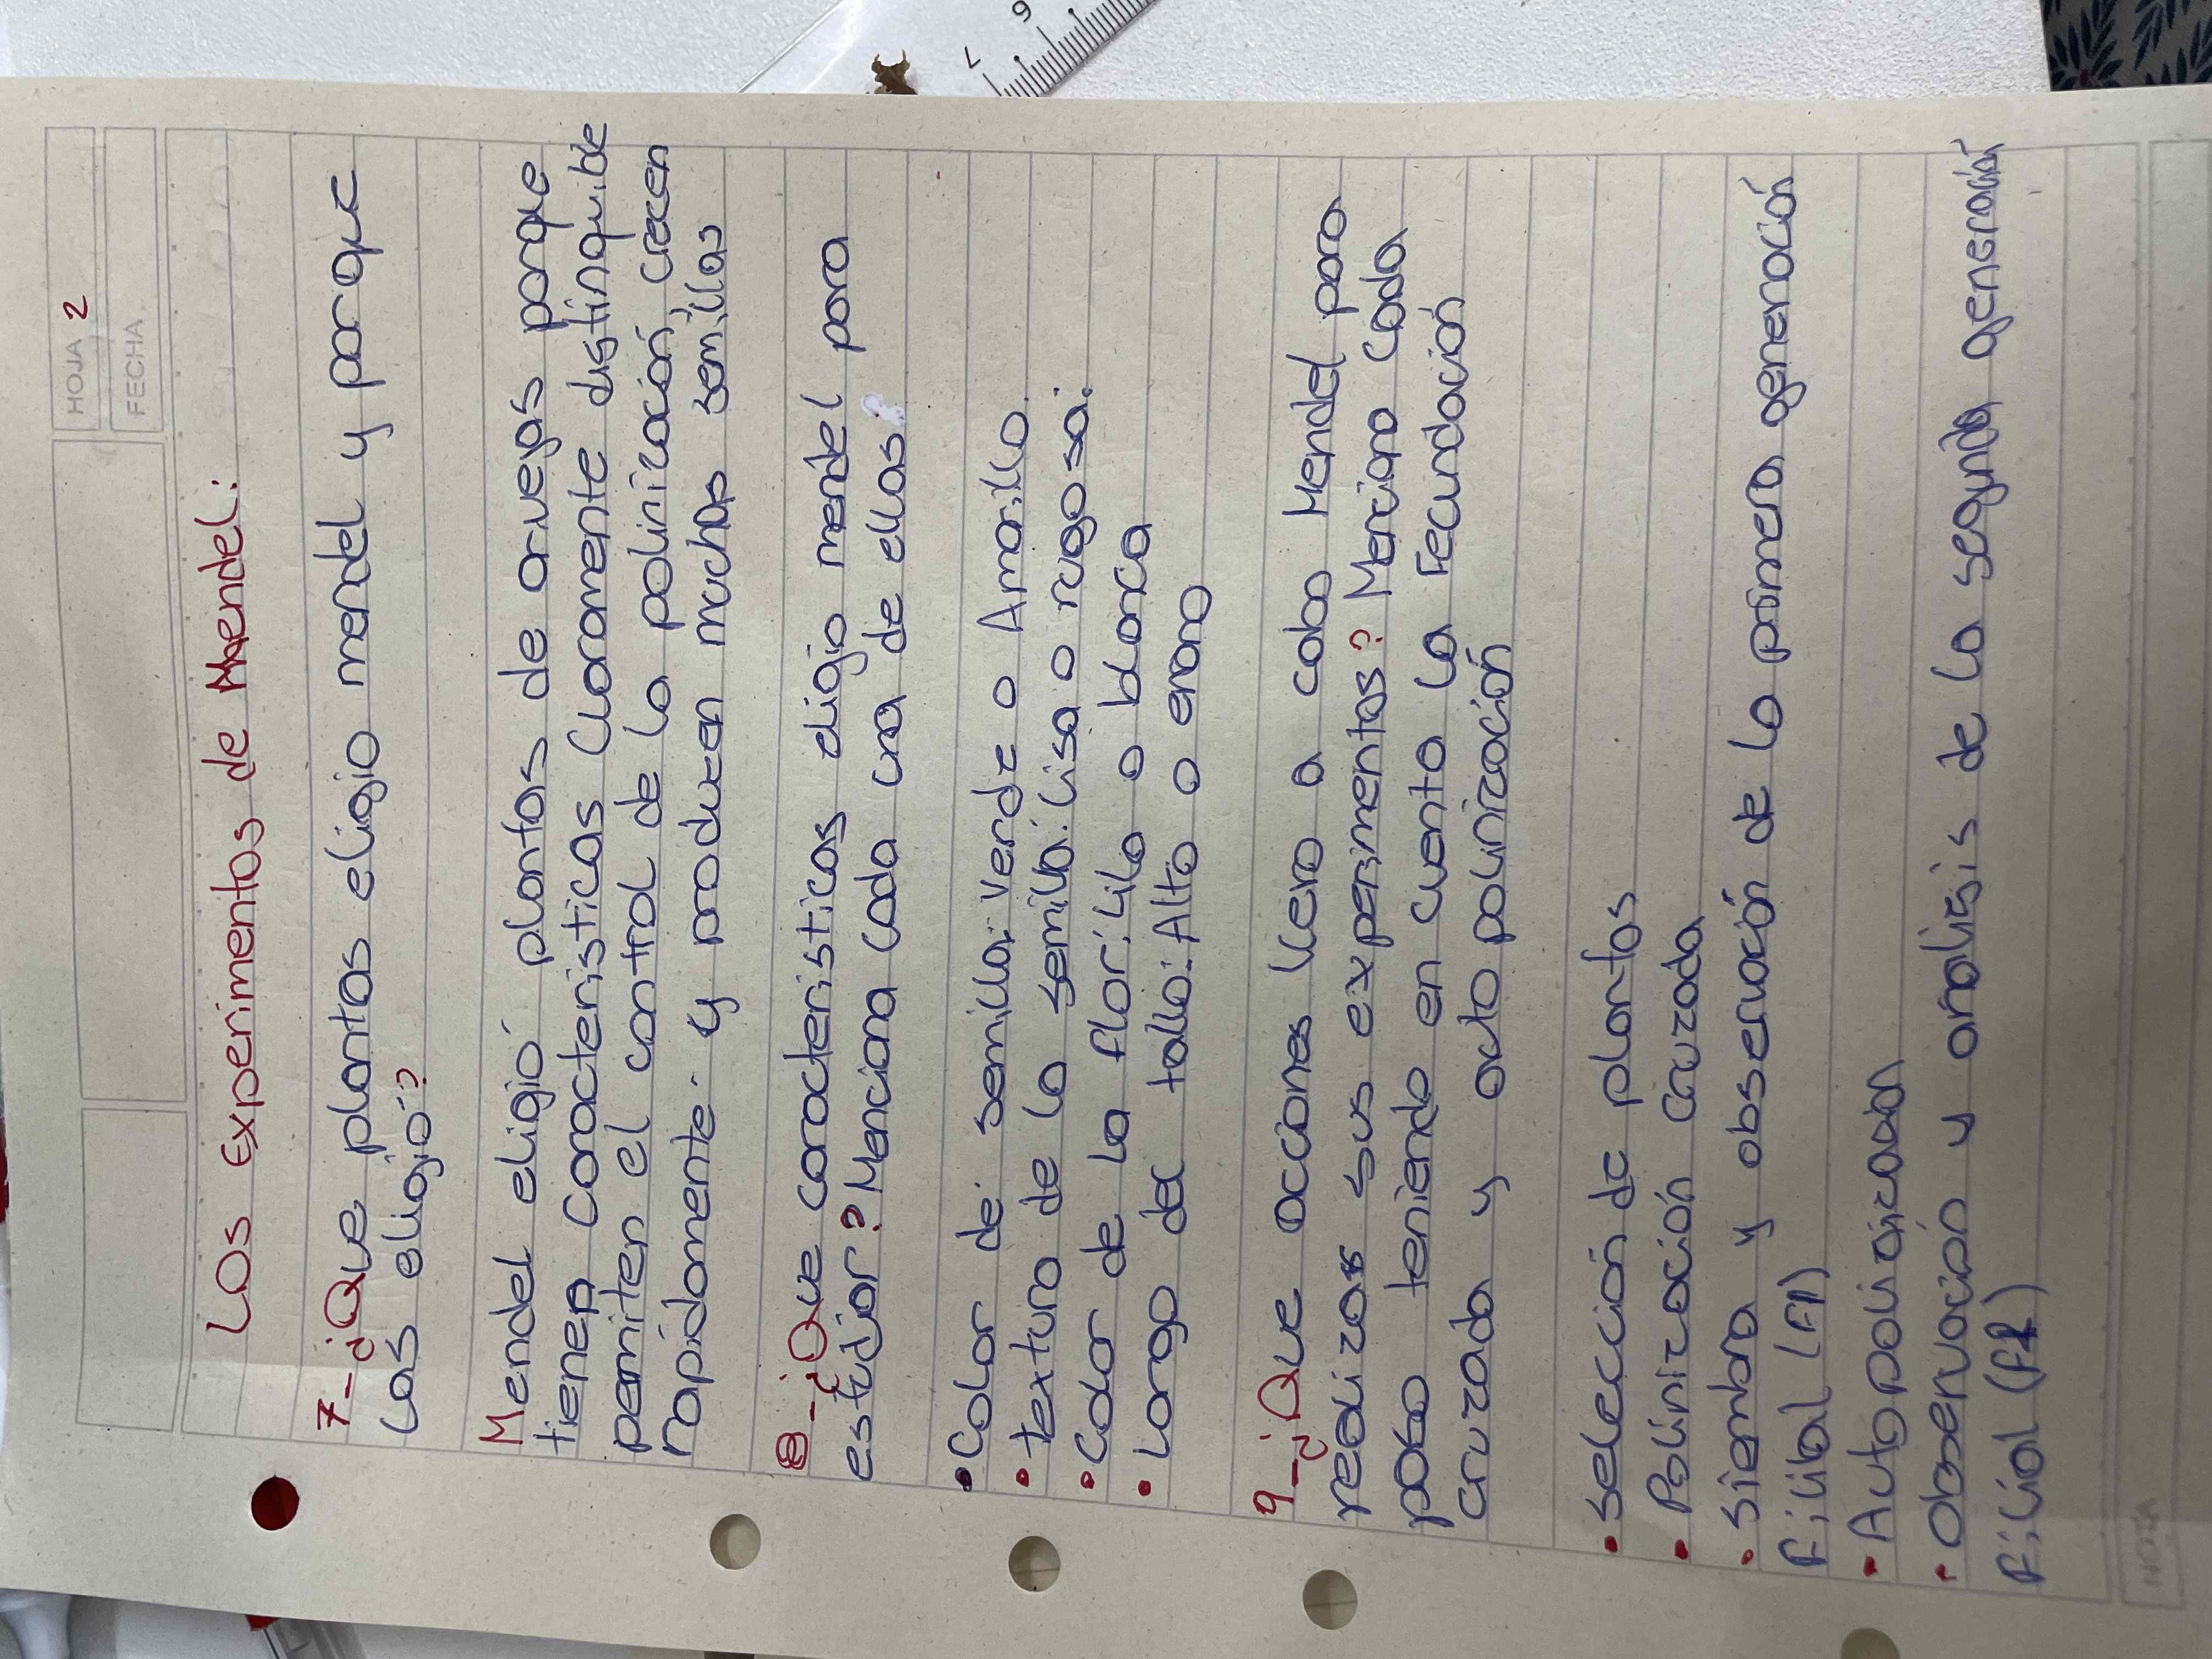 HOJA 2
FECHA
Los experimentos de Mendel:
7-¿Que plantas eligio mendel y porque
las eligio?
Mendel eligió plantas de arvejas porque
tienen caracteristicas claramente distinguible
permiten el control de la polinización, crecen
rapidamente y producen muchas semillas
8-¿Que caracteristicas eligio mendel para
estudiar? Menciona cada una de ellas.
• Color de semilla: Verde o Amarillo
• textura de la semilla: Lisa o rugosa.
• Color de la flor: Lila o blanca
• Largo del tallo: Alto o enano
9-¿Que acciones llevo a cabo Mendel para
realizar sus experimentos? Menciona Cada
paso teniendo en cuenta la Fecundación
cruzada y auto polinización
• selección de plantas
• Polinización cruzada
• siembra y observación de la primera generación
Filial (F1)
• Auto polinizada
• Observación y analisis de la segunda generación
Filial (F2)
NOTA
7 6